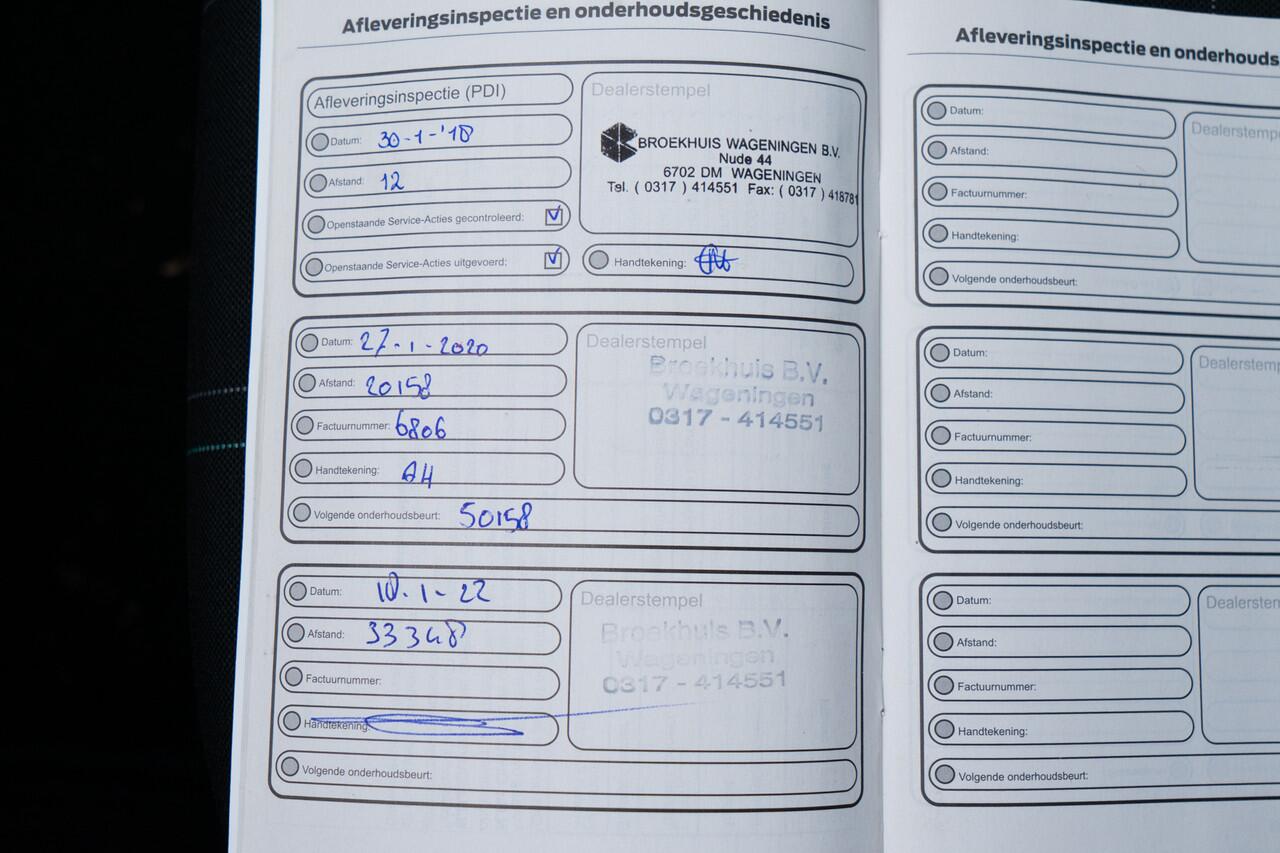 Afleveringsinspectie en onderhoudsgeschiedenis
Afleveringsinspectie (PDI)
Datum: 30-1-'18
Afstand: 12
Openstaande Service-Acties gecontroleerd:
Openstaande Service-Acties uitgevoerd:
Dealerstempel
BROEKHUIS WAGENINGEN B.V.
Nude 44
6702 DM WAGENINGEN
Tel. ( 0317 ) 414551 Fax: ( 0317 ) 418781
Handtekening:
Datum: 27-1-2020
Afstand: 20158
Factuurnummer: 6806
Handtekening: AH
Volgende onderhoudsbeurt: 50158
Dealerstempel
Broekhuis B.V.
Wageningen
0317 - 414551
Datum: 18-1-22
Afstand: 33348
Factuurnummer:
Handtekening:
Volgende onderhoudsbeurt:
Dealerstempel
Broekhuis B.V.
Wageningen
0317 - 414551
Afleveringsinspectie en onderhouds
Datum:
Afstand:
Factuurnummer:
Handtekening:
Volgende onderhoudsbeurt:
Dealerstempe
Datum:
Afstand:
Factuurnummer:
Handtekening:
Volgende onderhoudsbeurt:
Dealerstemp
Datum:
Afstand:
Factuurnummer:
Handtekening:
Volgende onderhoudsbeurt:
Dealersten